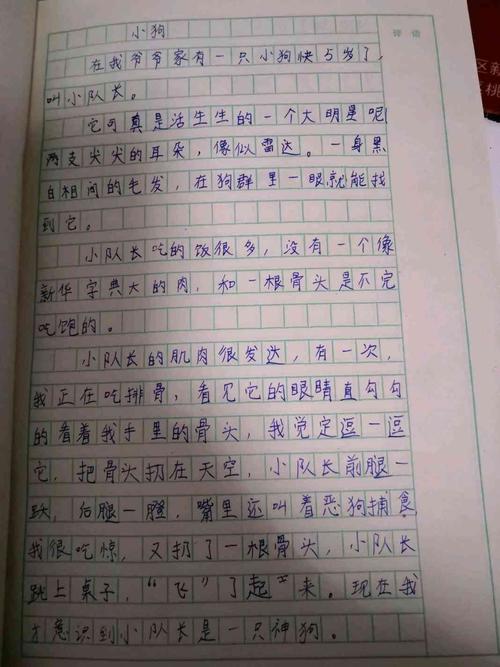 小狗
评语
在我爷爷家有一只小狗快5岁了,
叫小队长。
它可真是活生生的一个大明星呢
两支尖尖的耳朵，像似雷达。一身黑
白相间的毛发，在狗群里一眼就能找
到它。
小队长吃的饭很多，没有一个像
新华字典大的肉，和一根骨头是不完
吃饱的。
小队长的肌肉很发达，有一次，
我正在吃排骨，看见它的眼睛直勾勾
的看着我手里的骨头，我觉定逗一逗
它，把骨头扔在天空，小队长前腿一
跃，后腿一蹬，嘴里还叫着恶狗捕食
我很吃惊，又扔了一根骨头，小队长
跳上桌子，“飞”了起来。现在我
才意识到小队长是一只神狗。